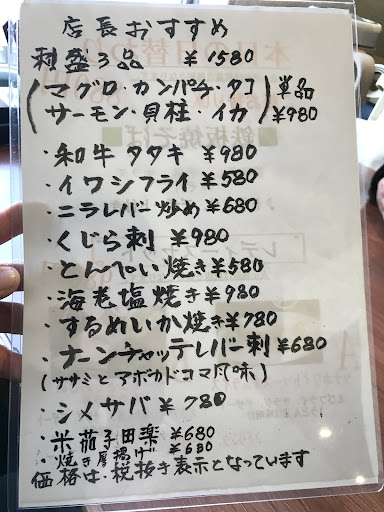 店長おすすめ
刺盛3品 ¥1580
(マグロ・カンパチ・タコ
サーモン・貝柱・イカ) 単品 ¥980
・和牛タタキ ¥980
・イワシフライ ¥580
・ニラレバー炒め ¥680
・くじら刺 ¥980
・とんぺい焼き ¥580
・海老塩焼き ¥980
・するめいか焼き ¥780
・ナーンチャッテレバー刺 ¥680
(ササミとアボカドコマ風味)
・シメサバ ¥780
・米茄子田楽 ¥680
・焼き厚揚げ ¥680
価格は、税抜き表示となっています